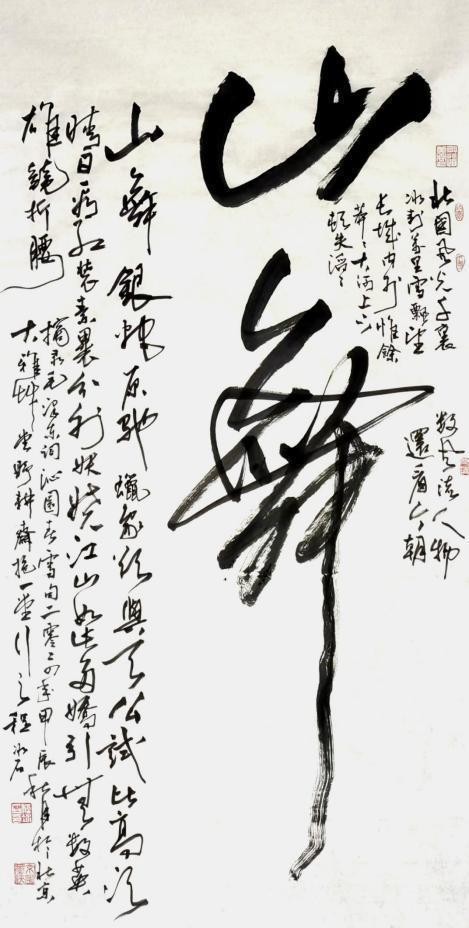 山舞
北国风光千里
冰封万里雪飄望
长城内外惟餘
莽〻大河上下
顿失滔〻
数风流人物
還看今朝
山舞銀蛇原驰蠟象欲與天公試比高须
晴日看红装素裹分外妖娆江山如此多嬌引無数英
雄競折腰
摘录毛泽东词沁园春雪句二零二四年甲辰秋月於北京
大雅草堂野耕齋抱一堂引之程冰石